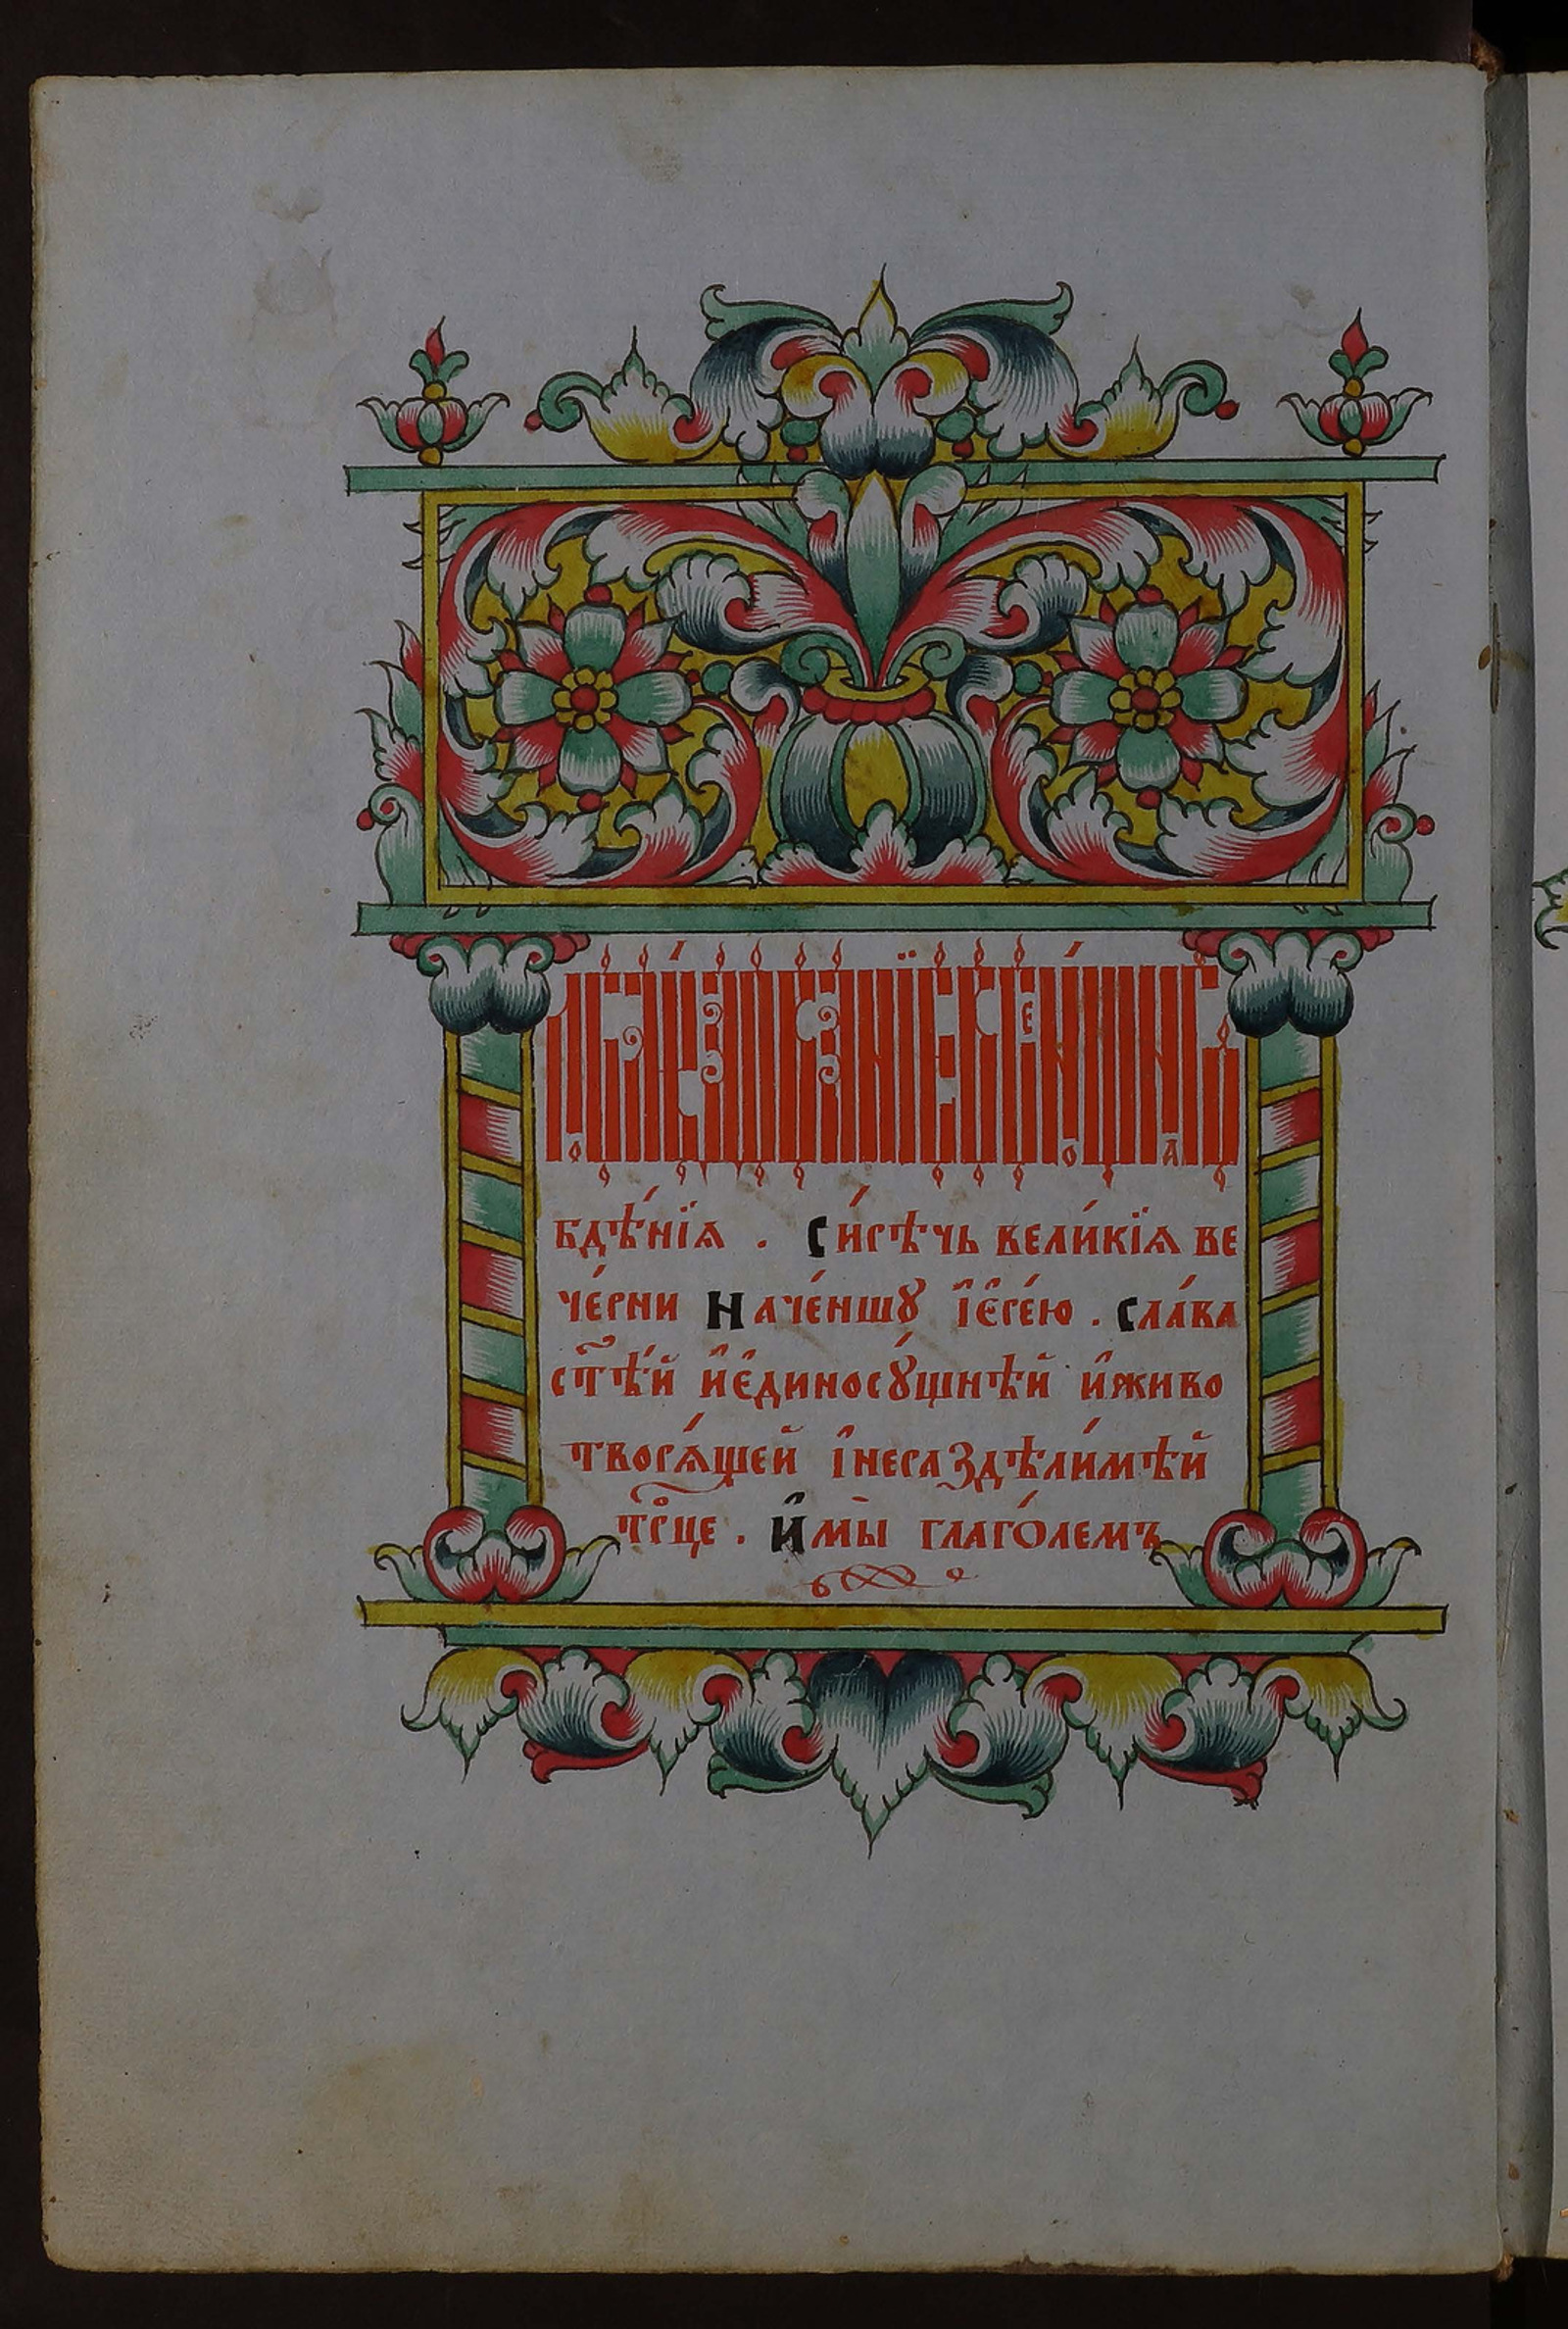 бдѣ́нїѧ . Си́рѣчь вели́кїѧ ве
че́рни Наче́ншꙋ і҆є҆ре́ю . Сла́ва
ст҃ѣ́й и҆є҆диносꙋ́щнѣй и҆живо
творѧ́щей і҆нераздѣли́мѣй
трⷪ҇це . И҆мы̀ глаго́лемъ